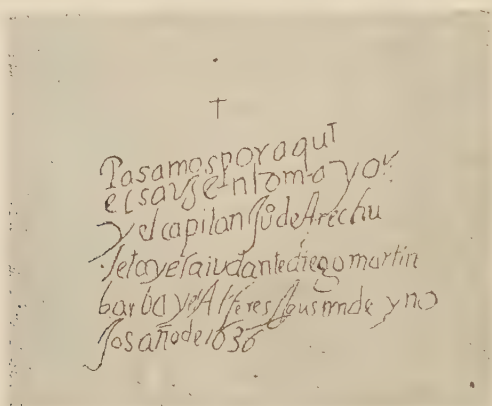 Pasamos por aqui
el sarjento mayor
y el capitan Ju de Arechu
leta y el aiudante diego martin
barba y el Alferes Agustin de yno
Jos año de 1636